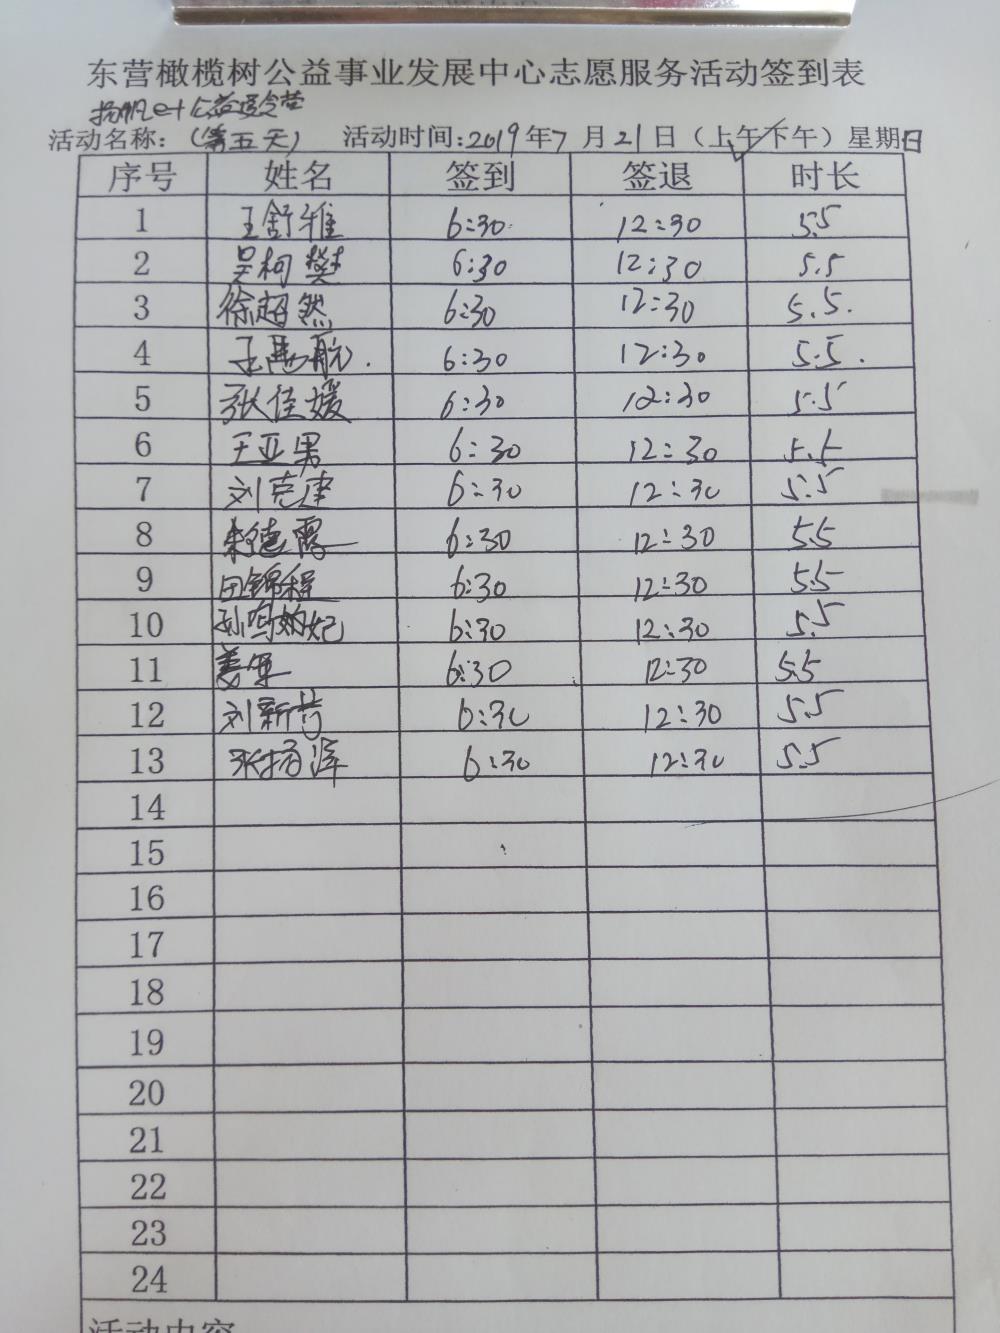 东营橄榄树公益事业发展中心志愿服务活动签到表
公益夏令营
活动名称：（第五天） 活动时间：2019年7月21日（上午✓下午）星期日
序号 姓名 签到 签退 时长
1 王舒雅 6:30 12:30 5.5
2 吴柯樊 6:30 12:30 5.5
3 徐超然 6:30 12:30 5.5.
4 王 航. 6:30 12:30 5.5.
5 张佳媛 6:30 12:30 5.5
6 王亚男 6:30 12:30 5.5
7 刘克建 6:30 12:30 5.5
8 朱德霞 6:30 12:30 5.5
9 田锦程 6:30 12:30 5.5
10 孙鸣 妃 6:30 12:30 5.5
11 姜军 6:30 12:30 5.5
12 刘新 6:30 12:30 5.5
13 张扬泽 6:30 12:30 5.5
14
15
16
17
18
19
20
21
22
23
24
活动内容